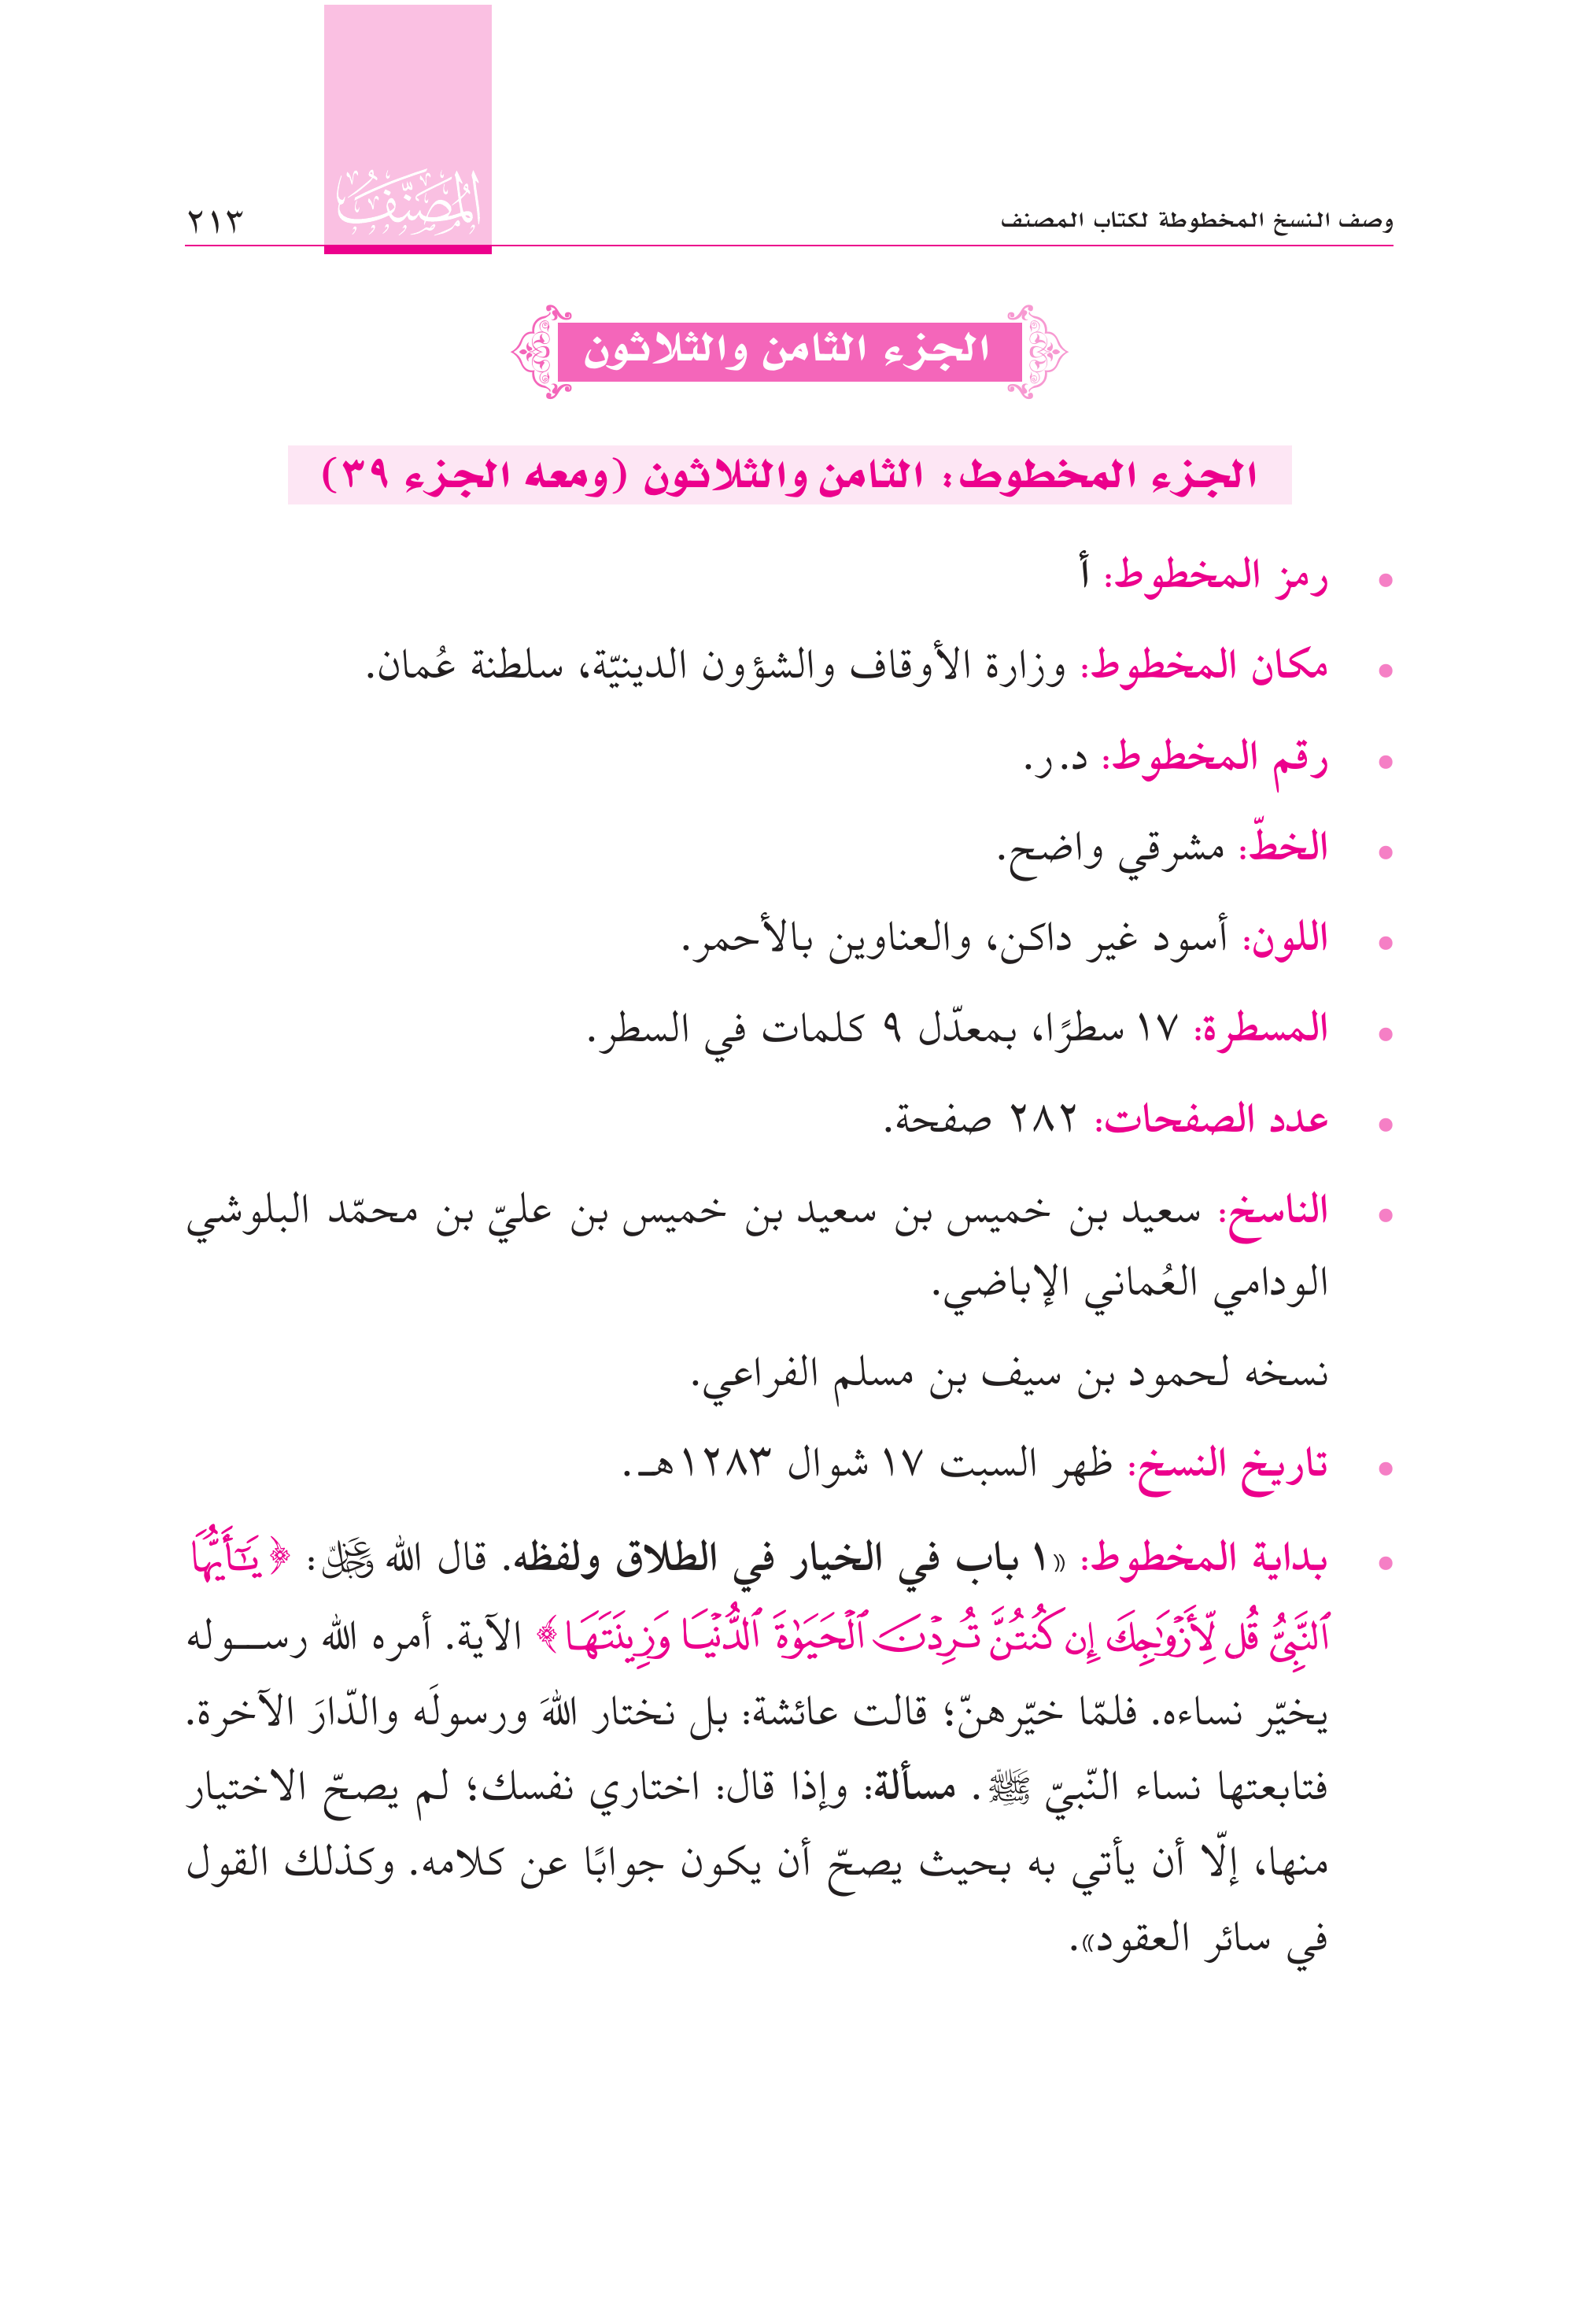 وصف النسخ المخطوطة لكتاب المصنف
المُصَنَّف
٢١٣
الجزء الثامن والثلاثون
الجزء المخطوط: الثامن والثلاثون (ومعه الجزء ٣٩)
• رمز المخطوط: أ
• مكان المخطوط: وزارة الأوقاف والشؤون الدينيّة، سلطنة عُمان.
• رقم المخطوط: د.ر.
• الخطّ: مشرقي واضح.
• اللون: أسود غير داكن، والعناوين بالأحمر.
• المسطرة: ١٧ سطرًا، بمعدّل ٩ كلمات في السطر.
• عدد الصفحات: ٢٨٢ صفحة.
• الناسخ: سعيد بن خميس بن سعيد بن خميس بن عليّ بن محمّد البلوشي
الودامي العُماني الإباضي.
نسخه لحمود بن سيف بن مسلم الفراعي.
• تاريخ النسخ: ظهر السبت ١٧ شوال ١٢٨٣هـ.
• بداية المخطوط: «١ باب في الخيار في الطلاق ولفظه. قال الله عَزَّ وَجَلَّ: ﴿يَٰٓأَيُّهَا
ٱلنَّبِيُّ قُل لِّأَزْوَٰجِكَ إِن كُنتُنَّ تُرِدْنَ ٱلْحَيَوٰةَ ٱلدُّنْيَا وَزِينَتَهَا﴾ الآية. أمره الله رسـوله
يخيّر نساءه. فلمّا خيّرهنّ؛ قالت عائشة: بل نختار اللهَ ورسولَه والدّارَ الآخرة.
فتابعتها نساء النّبيّ ﷺ. مسألة: وإذا قال: اختاري نفسك؛ لم يصحّ الاختيار
منها، إلّا أن يأتي به بحيث يصحّ أن يكون جوابًا عن كلامه. وكذلك القول
في سائر العقود».